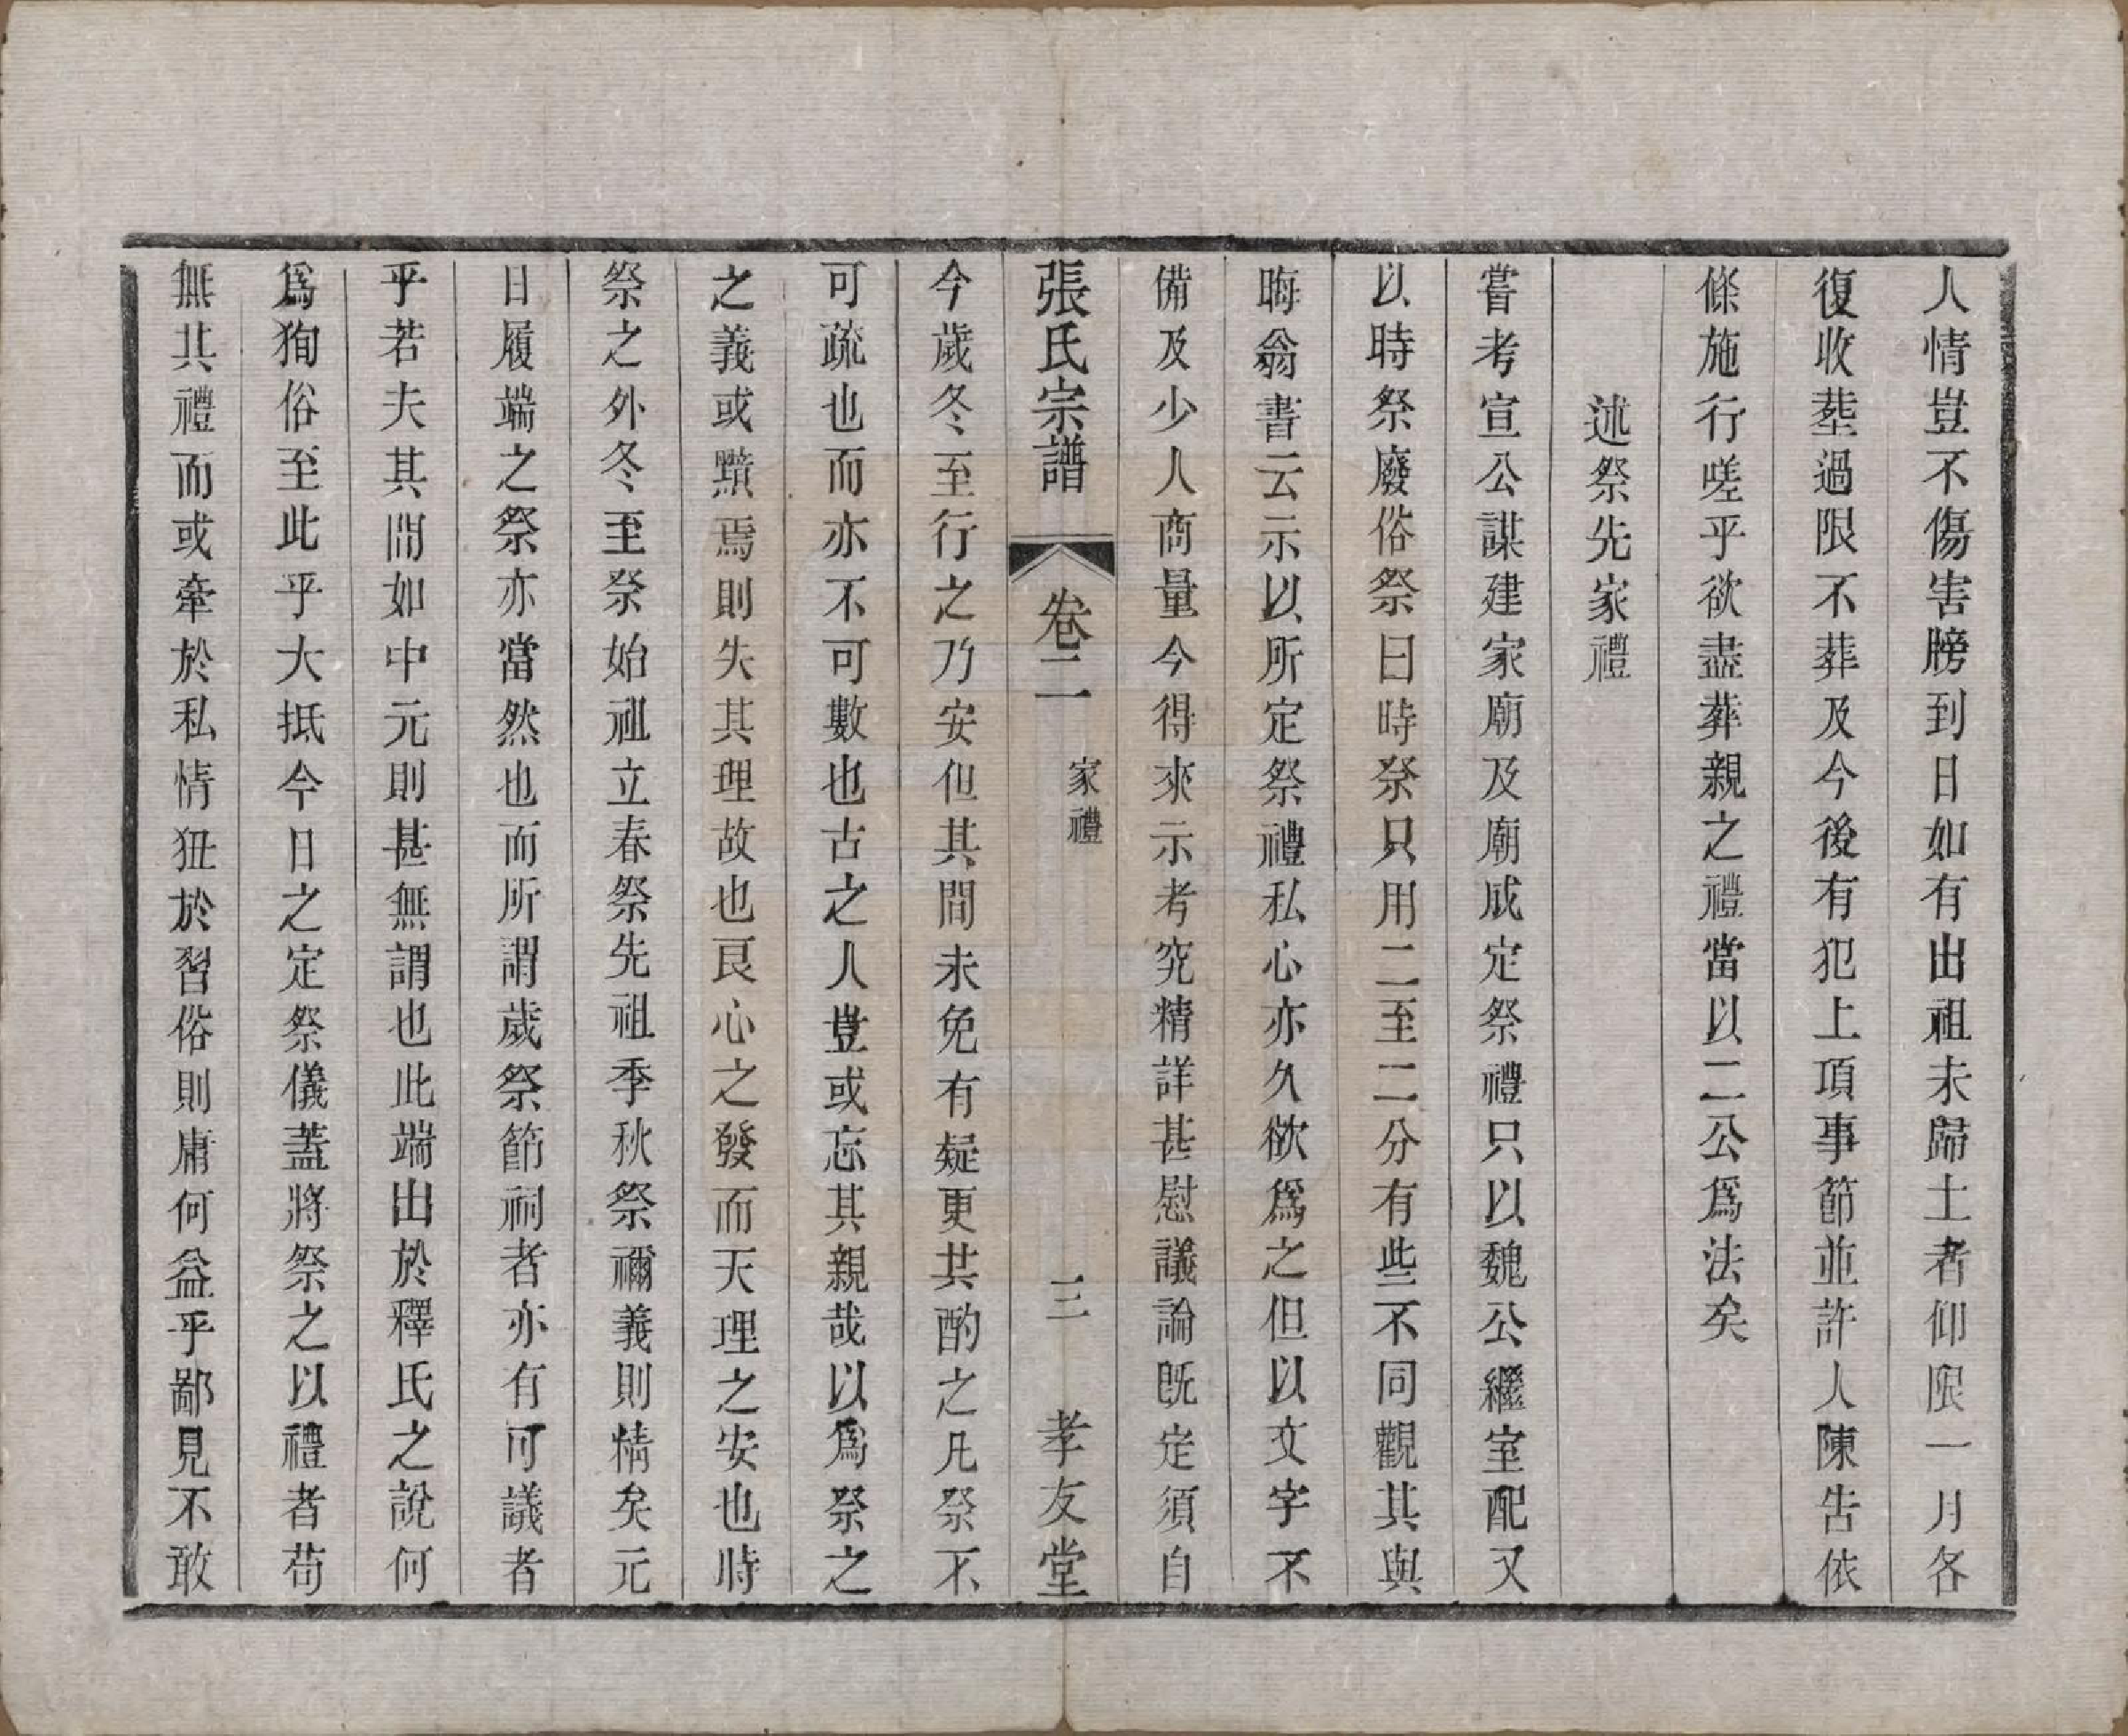 人情豈不傷害牓到日如有出祖未歸土者仰限一月各
復收塟過限不葬及今後有犯上項事節並許人陳告依
條施行嗟乎欲盡葬親之禮當以二公爲法矣
述祭先家禮
嘗考宣公謀建家廟及廟成定祭禮只以魏公繼室配又
以時祭廢俗祭曰時祭只用二至二分有些不同觀其與
晦翁書云示以所定祭禮私心亦久欲爲之但以文字不
備及少人商量今得來示考究精詳甚慰議論旣定須自
張氏宗譜 卷二 家禮 三 孝友堂
今歲冬至行之乃安但其間未免有疑更共酌之凡祭不
可疏也而亦不可數也古之人豈或忘其親哉以爲祭之
之義或黷焉則失其理故也良心之發而天理之安也時
祭之外冬至祭始祖立春祭先祖季秋祭禰義則情矣元
日履端之祭亦當然也而所謂歲祭節祠者亦有可議者
乎若夫其間如中元則甚無謂也此端出於釋氏之說何
爲狥俗至此乎大抵今日之定祭儀蓋將祭之以禮者苟
無其禮而或牽於私情狃於習俗則庸何益乎鄙見不敢